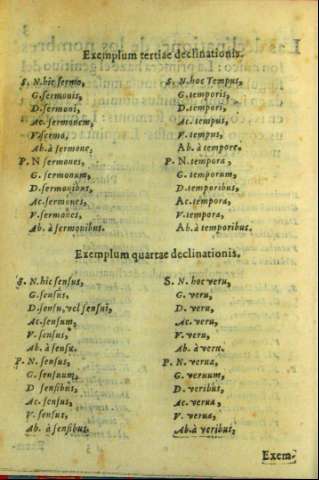 Exemplum tertiae declinationis.
S. N. hic sermo,
G. sermonis,
D. sermoni,
Ac. sermonem,
V. sermo,
Ab. à sermone,
P. N sermones,
G. sermonum,
D. sermonibus,
Ac. sermones,
V. sermones,
Ab. à sermonibus.
S. N. hoc Tempus,
G. temporis,
D. tempori,
Ac. tempus,
V. tempus,
Ab. à tempore.
P. N. tempora,
G. temporum,
D. temporibus,
Ac. tempora,
V. tempora,
Ab. à temporibus.
Exemplum quartae declinationis.
S. N. hic sensus,
G. sensus,
D. sensu, vel sensui,
Ac. sensum,
V. sensus,
Ab. à sensu.
P. N. sensus,
G. sensuum,
D sensibus,
Ac. sensus,
V. sensus,
Ab. à sensibus.
S. N. hoc veru,
G. veru,
D. veru,
Ac. veru,
V. veru,
Ab. à veru.
P. N. verua,
G. veruum,
D. veribus,
Ac. verua,
V. verua,
Ab. à veribus,
Exem-